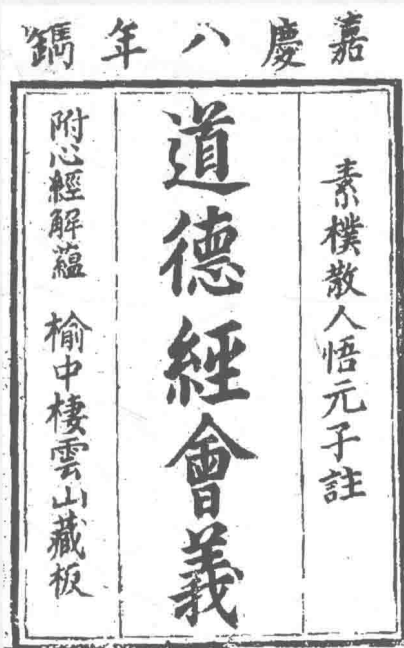 嘉慶八年鐫
素樸散人悟元子註
道德經會義
附心經解蘊　榆中棲雲山藏板